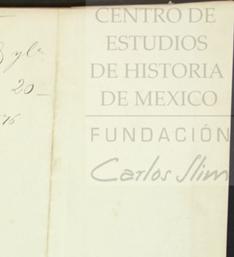 CENTRO DE
ESTUDIOS
DE HISTORIA
DE MEXICO
FUNDACIÓN
Carlos Slim
20